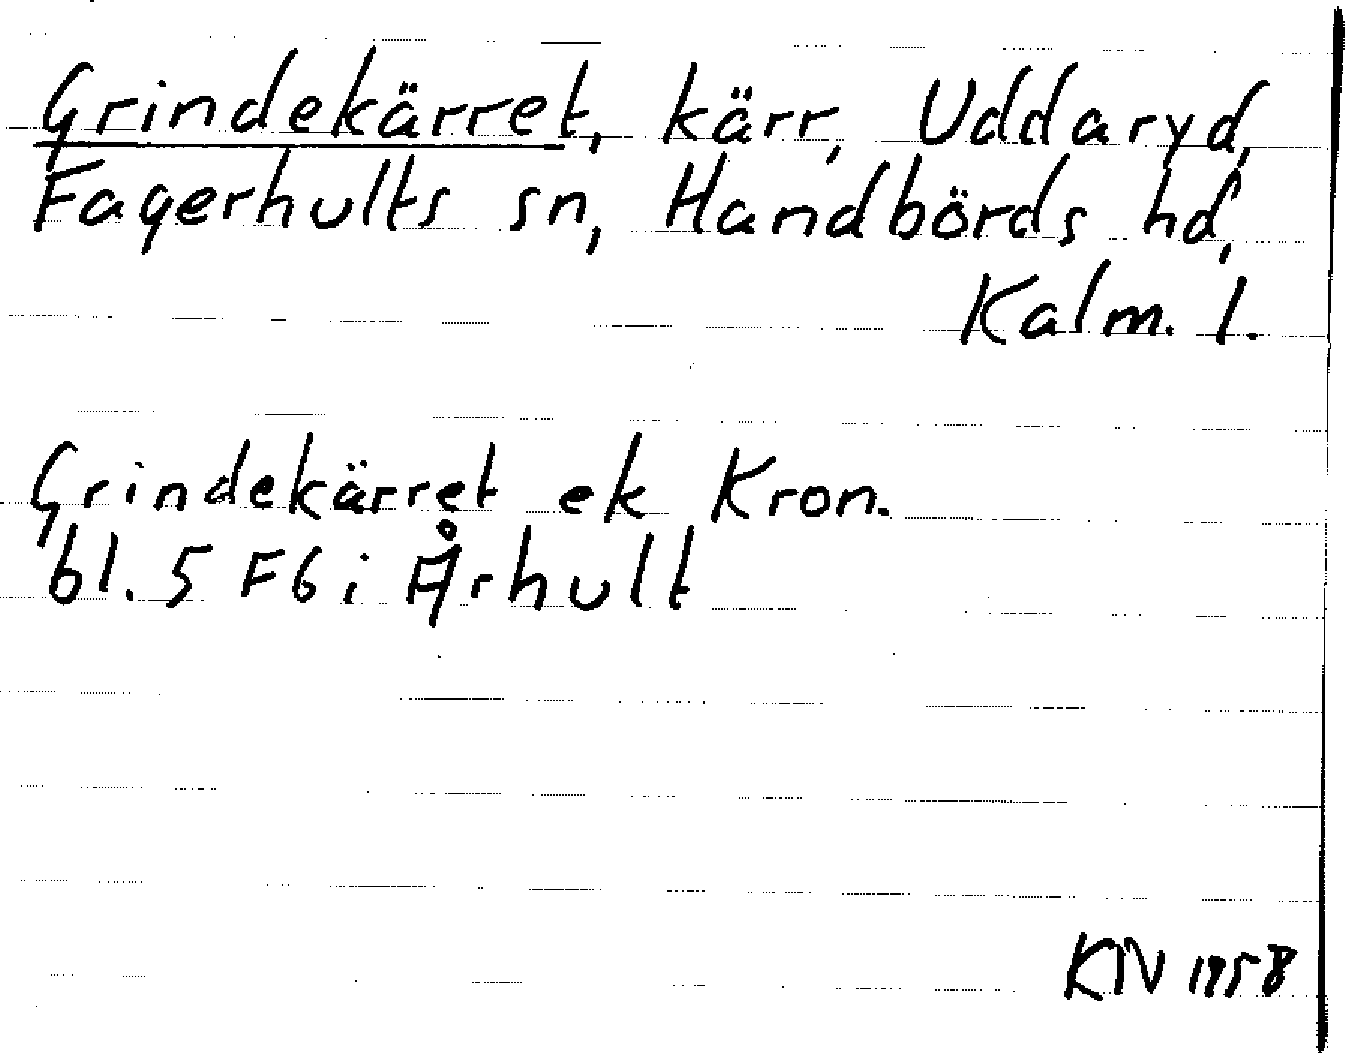 Grindekärret, kärr, Uddaryd,
Fagerhults sn, Handbörds hd,
Kalm. l.
Grindekärret ek Kron.
bl. 5 F6 i Århult
KN 1958